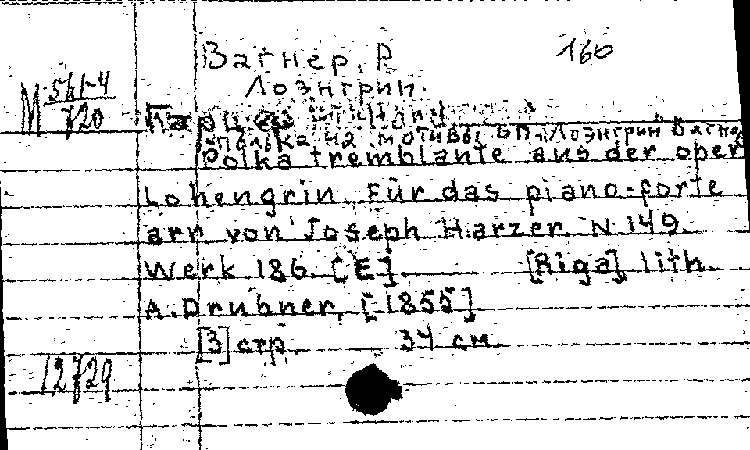 Вагнер, Р 160
Лоэнгрин.
М 561-4/720
Полька на мотивы из оп. Лоэнгрин Вагнера
Polka tremblante aus der oper
Lohengrin. Für das piano-forte
arr von Joseph Harzer. N 149.
Werk 186. [E] [Riga] lith.
A. Drubner, [1855]
[3] стр. 34 см.
12729